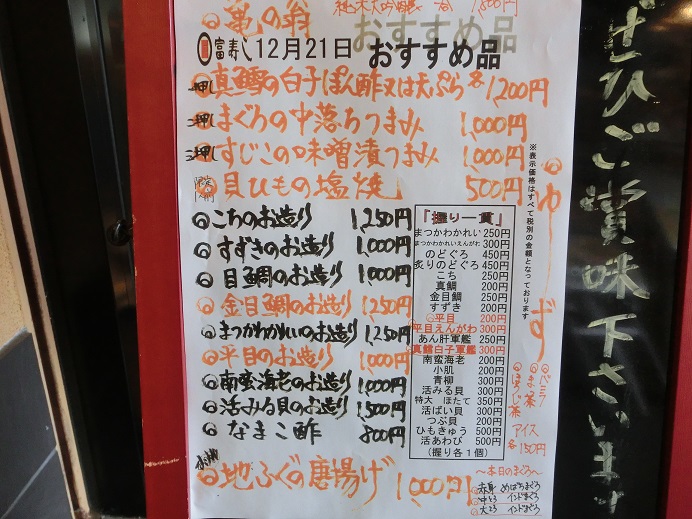 亀の翁
1,800円
富寿し12月21日 おすすめ品
一押し 真鱈の白子ぽん酢又は天ぷら各1,200円
二押し まぐろの中落ちつまみ 1,000円
三押し すじこの味噌漬つまみ 1,000円
貝ひもの塩焼 500円
こちのお造り 1,250円
すずきのお造り 1,000円
目鯛のお造り 1,000円
金目鯛のお造り 1,250円
まつかわかれいのお造り 1,250円
平目のお造り 1,000円
南蛮海老のお造り 1,000円
活みる貝のお造り 1,500円
なまこ酢 800円
地ふぐの唐揚げ 1,000円
「握り一貫」
まつかわかれい 250円
まつかわかれいえんがわ 300円
のどぐろ 450円
炙りのどぐろ 450円
こち 250円
真鯛 200円
金目鯛 250円
すずき 200円
平目 200円
平目えんがわ 300円
あん肝軍艦 250円
真鱈白子軍艦 300円
南蛮海老 200円
小肌 200円
青柳 200円
活みる貝 300円
特大 ほたて 350円
活ばい貝 300円
つぶ貝 200円
ひもきゅう 500円
活あわび 500円
(握り各1個)
※表示価格はすべて税別の金額となっております
ゆーず
バニラ
まっ茶
ほうじ茶
アイス
各150円
〜本日のまぐろ〜
赤身 めばちまぐろ
中とろ インドまぐろ
大とろ インドまぐろ
ぜひご賞味下さいませ